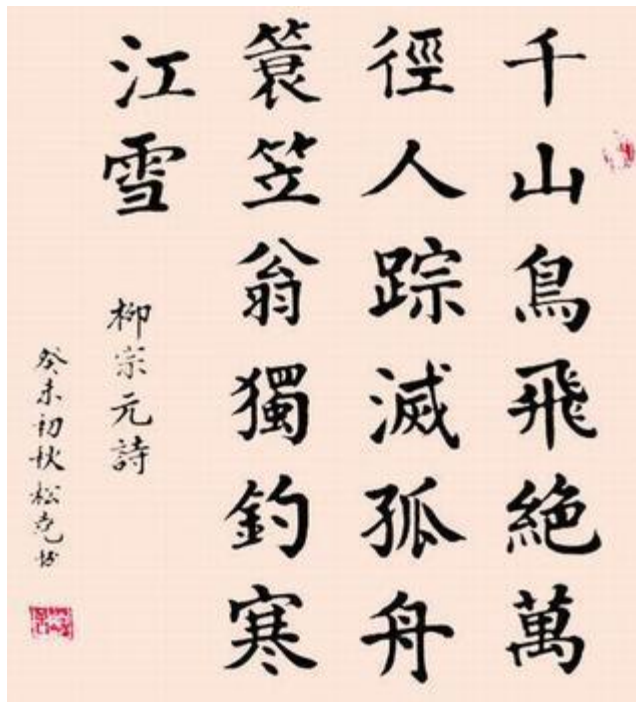 千山鳥飛絕萬
徑人踪滅孤舟
簑笠翁獨釣寒
江雪
柳宗元詩
癸未初秋松堯书